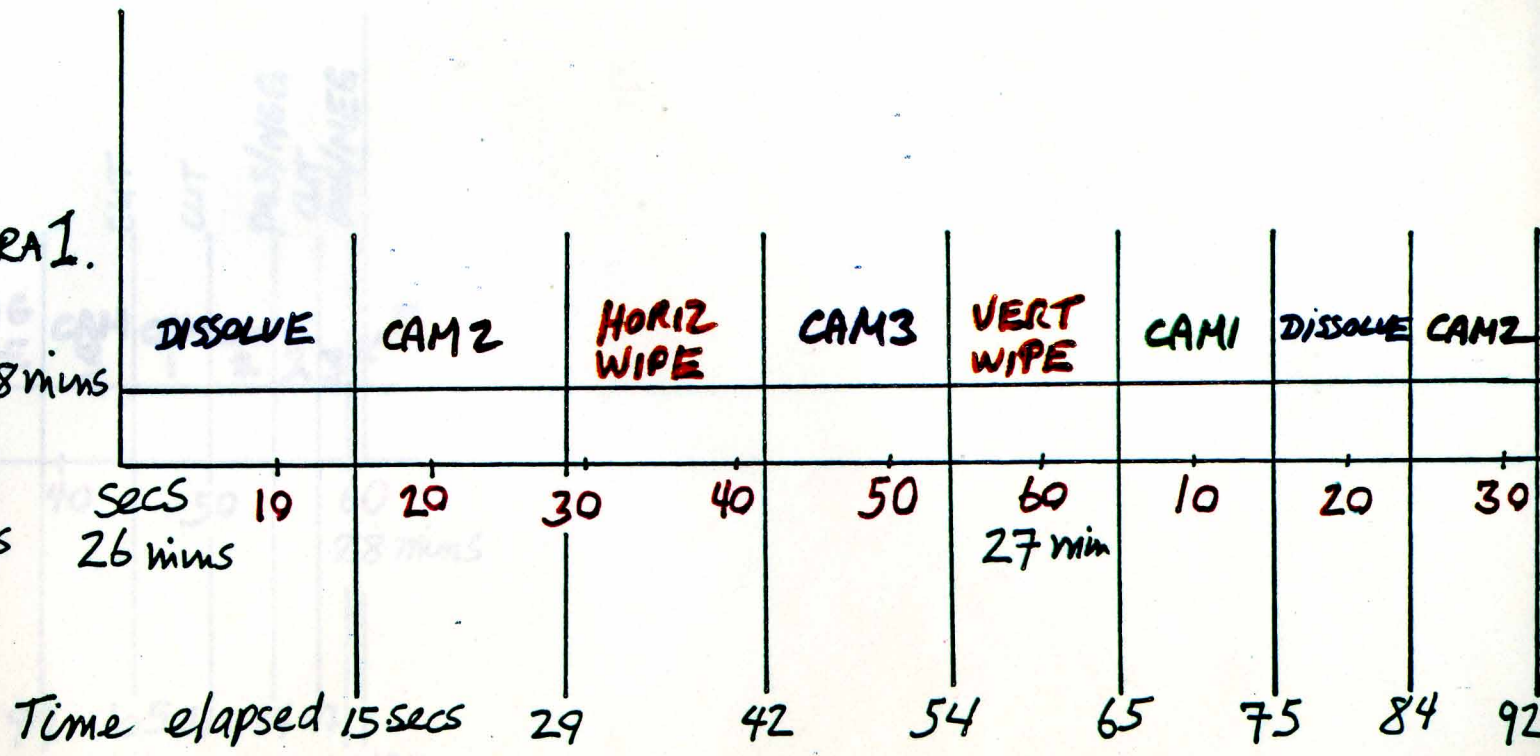 RA 1.
DISSOLVE CAM 2 HORIZ WIPE CAM3 VERT WIPE CAM1 DISSOLVE CAM2
8 mins
secs 10 20 30 40 50 60 10 20 30
s 26 mins 27 min
Time elapsed 15 secs 29 42 54 65 75 84 92